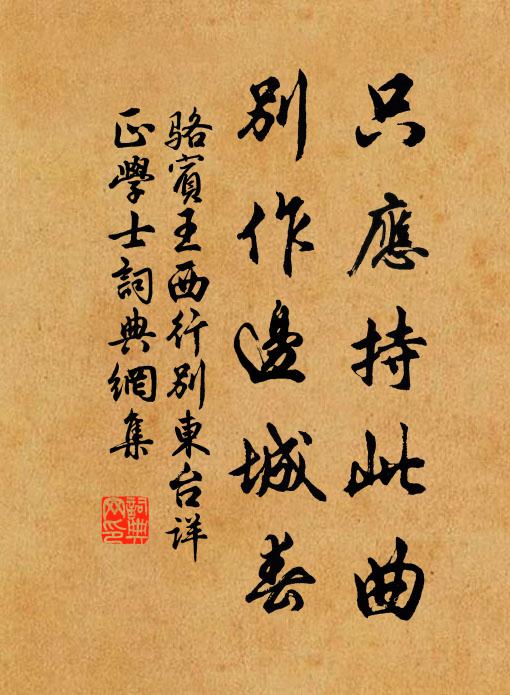 只應持此曲
別作邊城春
駱賓王西行別東台详
正學士詞典網集
詞典
网印